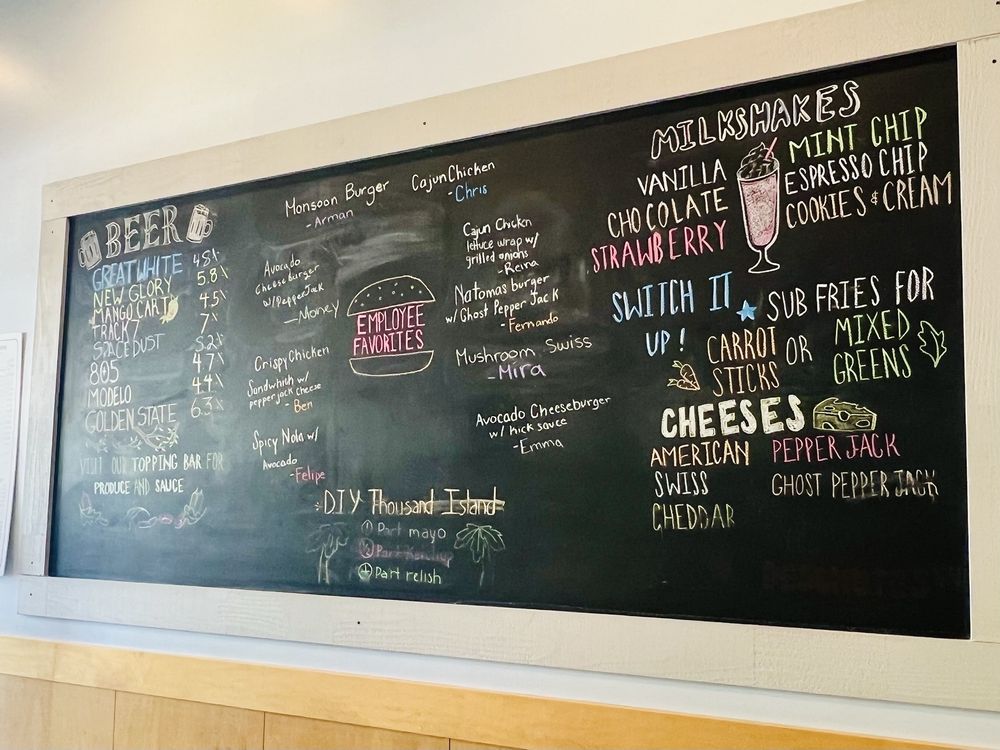 BEER
GREAT WHITE 4.8%
NEW GLORY 5.8%
MANGO CART 4.5%
TRACK 7 7%
SPACE DUST 8.2%
805 4.7%
MODELO 4.4%
GOLDEN STATE 6.3%
VISIT OUR TOPPING BAR FOR
PRODUCE AND SAUCE
Monsoon Burger
-Arman
Avocado
Cheeseburger
w/PepperJack
-Money
Crispy Chicken
Sandwhich w/
pepper jack cheese
- Ben
Spicy Nola w/
Avocado
-Felipe
EMPLOYEE
FAVORITES
Cajun Chicken
-Chris
Cajun Chicken
lettuce wrap w/
grilled onions
- Reina
Natomas burger
w/ Ghost Pepper Jack
- Fernando
Mushroom Swiss
-Mira
Avocado Cheeseburger
w/ kick sauce
-Emma
DIY Thousand Island
Part mayo
Part Ketchup
Part relish
MILKSHAKES
VANILLA
CHOCOLATE
STRAWBERRY
MINT CHIP
ESPRESSO CHIP
COOKIES & CREAM
SWITCH IT
UP!
SUB FRIES FOR
CARROT
STICKS
OR
MIXED
GREENS
CHEESES
AMERICAN
SWISS
CHEDDAR
PEPPER JACK
GHOST PEPPER JACK